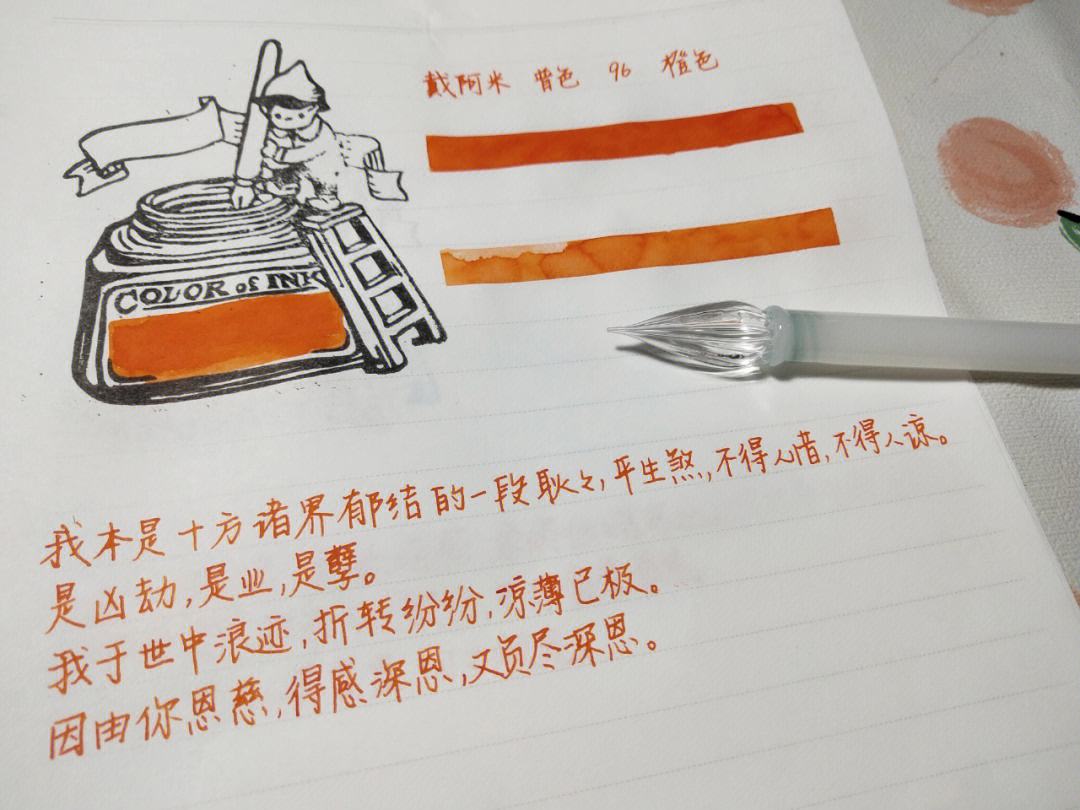 戴阿米 普色 96 橙色
COLOR of INK
我本是十方诸界郁结的一段耿々,平生煞,不得人惜,不得人谅。
是凶劫,是业,是孽。
我于世中浪迹,折转纷纷,凉薄已极。
因由你恩慈,得感深恩,又负尽深恩。